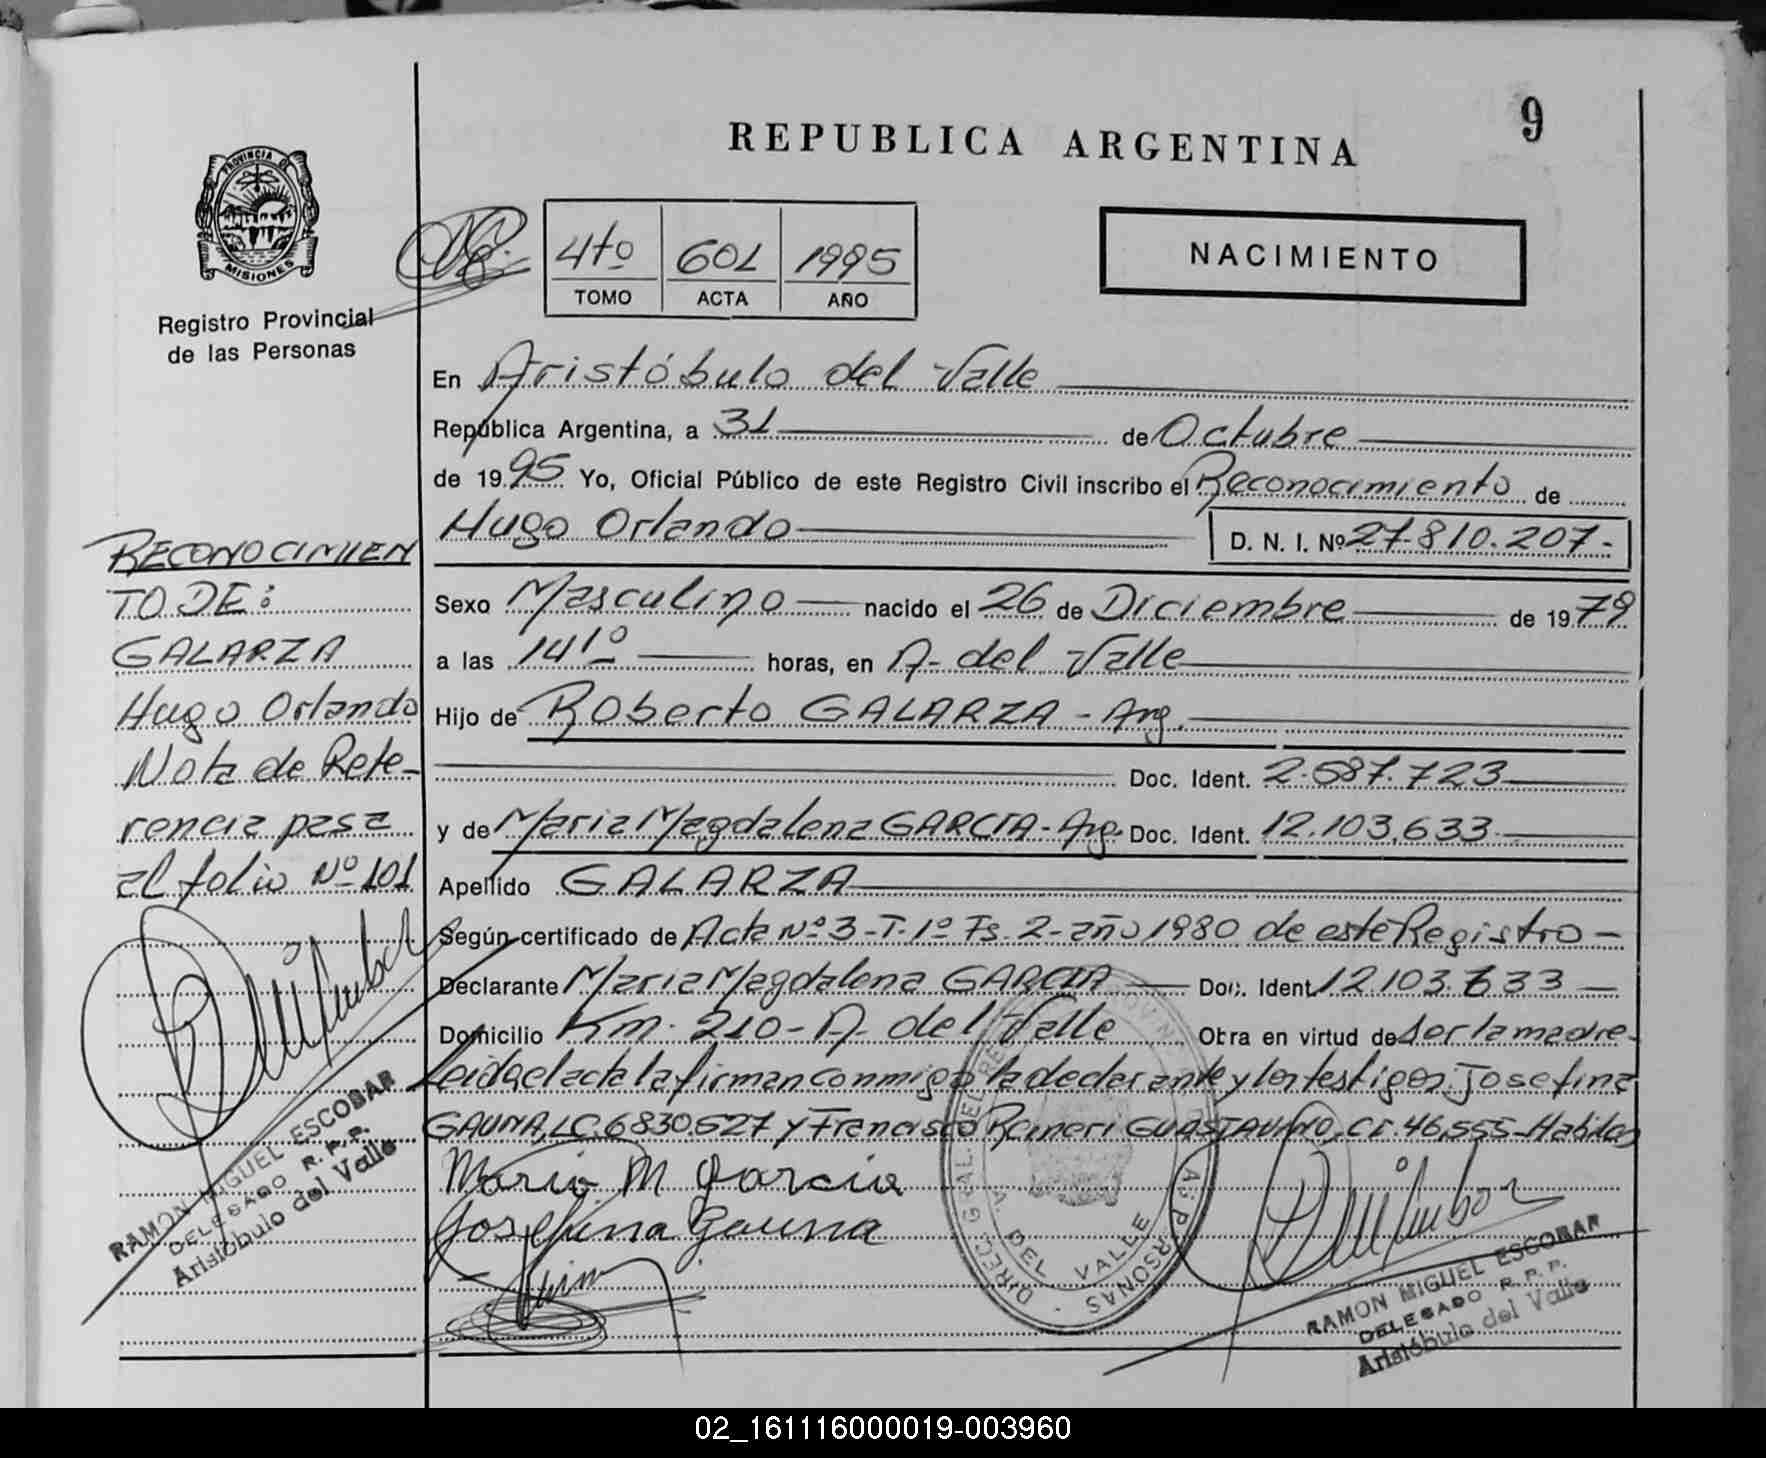 9
REPUBLICA ARGENTINA
PROVINCIA DE
MISIONES
Registro Provincial
de las Personas
4to 601 1995
TOMO ACTA AÑO
NACIMIENTO
En Aristóbulo del Valle
República Argentina, a 31 de Octubre
de 1995 Yo, Oficial Público de este Registro Civil inscribo el Reconocimiento de
Hugo Orlando D. N. I. Nº 27.810.207.-
Sexo Masculino nacido el 26 de Diciembre de 1979
a las 14 horas, en A. del Valle
Hijo de Roberto GALARZA - Arg.
Doc. Ident. 2.687.723
y de Maria Magdalena GARCIA - Arg. Doc. Ident. 12.103.633
Apellido GALARZA
Según certificado de Acta Nº 3-T. 1º Fs. 2- año 1980 de este Registro -
Declarante Maria Magdalena GARCIA Doc. Ident. 12.103.633 -
Domicilio Km. 210- A. del Valle Obra en virtud de ser la madre-
Leida el acta la firman conmigo la declarante y los testigos: Josefina
GAUNA, LC. 6830.527 y Francisco Raineri GUASTAVINO, CI. 46.555-Habiles
Maria M Garcia
Josefina Gauna
RECONOCIMIEN
TO DE:
GALARZA
Hugo Orlando
Nota de Refe-
rencia pasa
al folio Nº 101
RAMON MIGUEL ESCOBAR
DELEGADO R. P. P.
Aristóbulo del Valle
A. DEL VALLE
RAMON MIGUEL ESCOBAR
DELEGADO R. P. P.
Aristóbulo del Valle
02_161116000019-003960